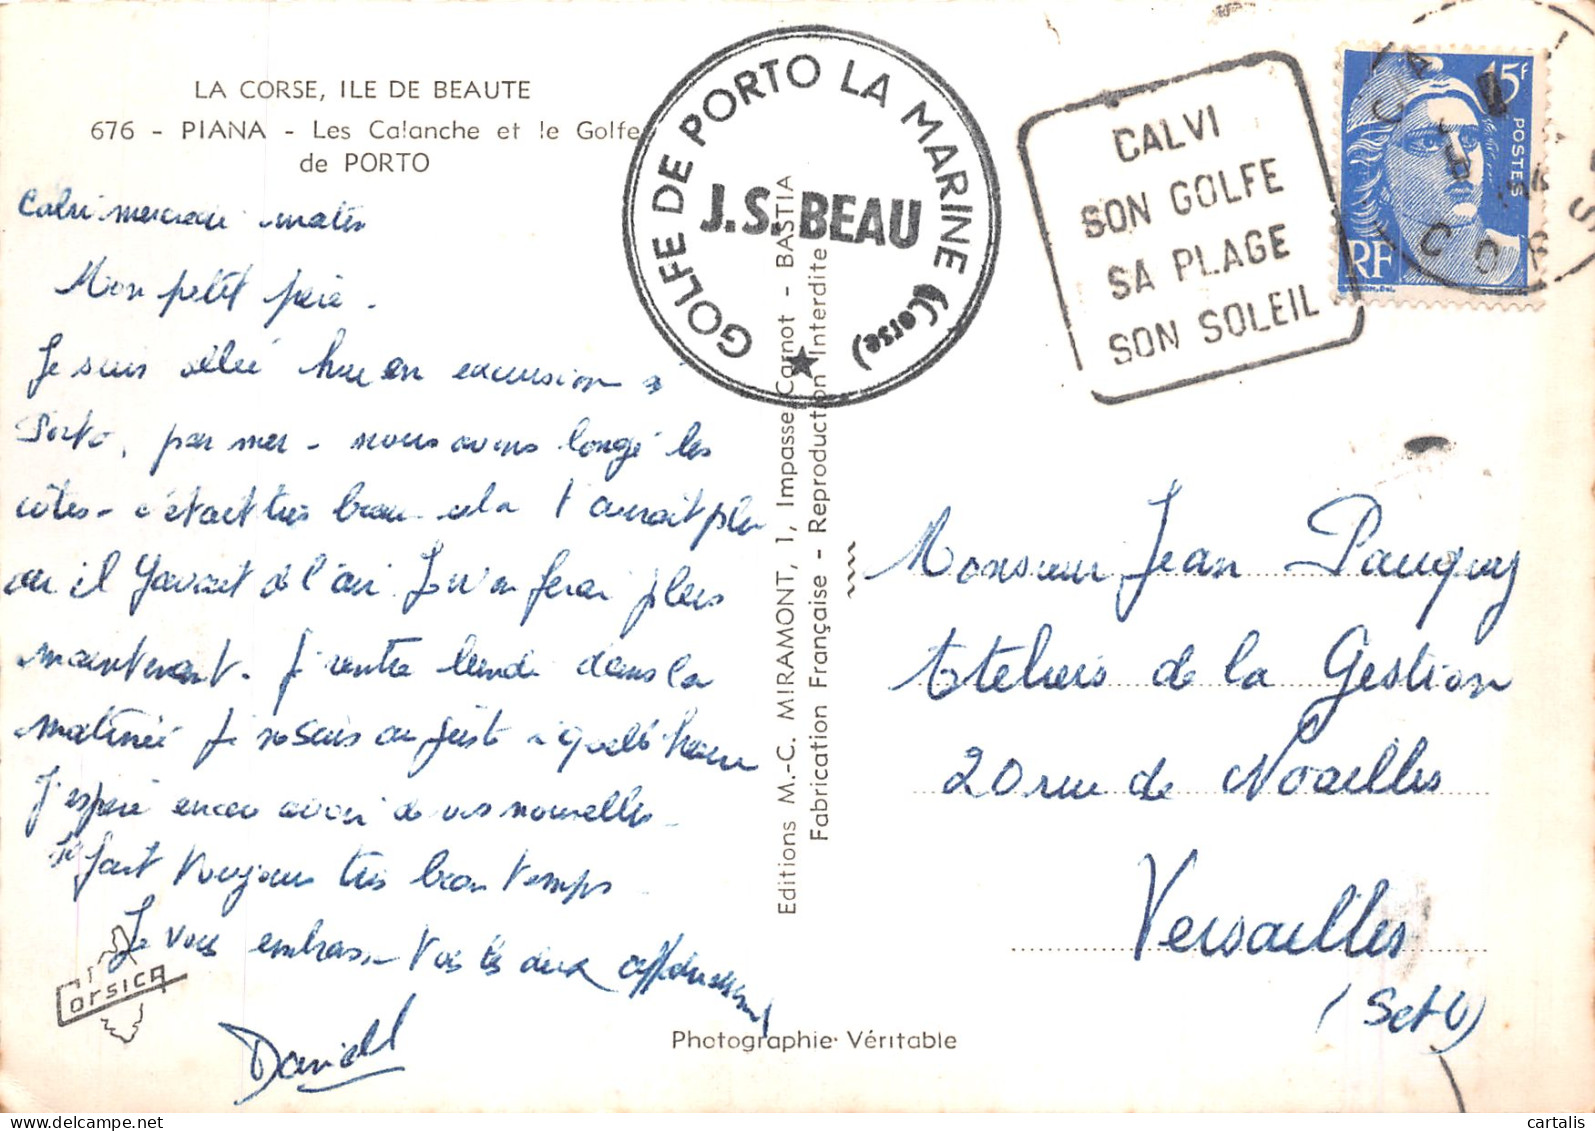 LA CORSE, ILE DE BEAUTE
676 - PIANA - Les Calanche et le Golfe
de PORTO
Calvi mercredi matin
Mon petit père.
Je suis allée hier en excursion à
Porto, par mer - nous avons longé les
côtes - c'était très beau cela t'aurait plu
car il y avait de l'air. J'en ferai plus
maintenant. Je rentre lundi dans la
matinée je ne sais au juste à quelle heure
J'espère encore avoir de vos nouvelles -
Il fait toujours très beau temps -
Je vous embrasse tous les deux affectueusement
Danielle
Corsica
GOLFE DE PORTO LA MARINE (Corse)
J.S. BEAU
Editions M.-C. MIRAMONT, 1, Impasse Carnot - BASTIA
Fabrication Française - Reproduction Interdite
Photographie Véritable
CALVI
SON GOLFE
SA PLAGE
SON SOLEIL
15F
POSTES
RF
CALVI
CORSE
Monsieur Jean Pauquy
Ateliers de la Gestion
20 rue de Noailles
Versailles
(Set O)
cartalis